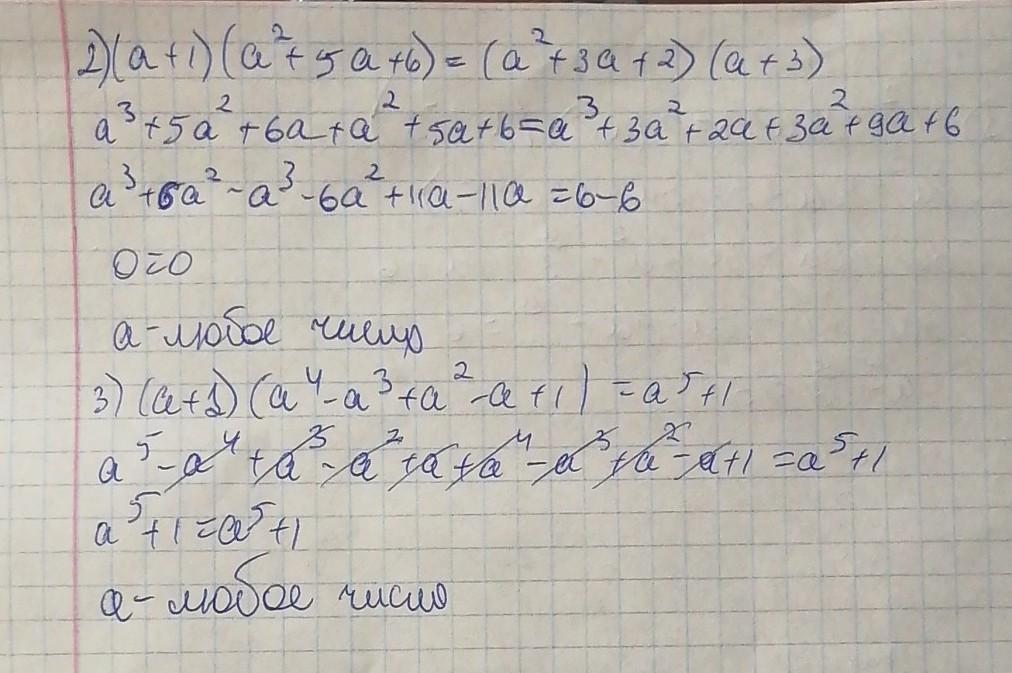 2)(a+1)(a²+5a+6)=(a²+3a+2)(a+3)
a³+5a²+6a+a²+5a+6=a³+3a²+2a+3a²+9a+6
a³+6a²-a³-6a²+11a-11a=6-6
0=0
a-любое число
3)(a+1)(a⁴-a³+a²-a+1)=a⁵+1
a⁵-a⁴+a³-a²+a+a⁴-a³+a²-a+1=a⁵+1
a⁵+1=a⁵+1
a-любое число